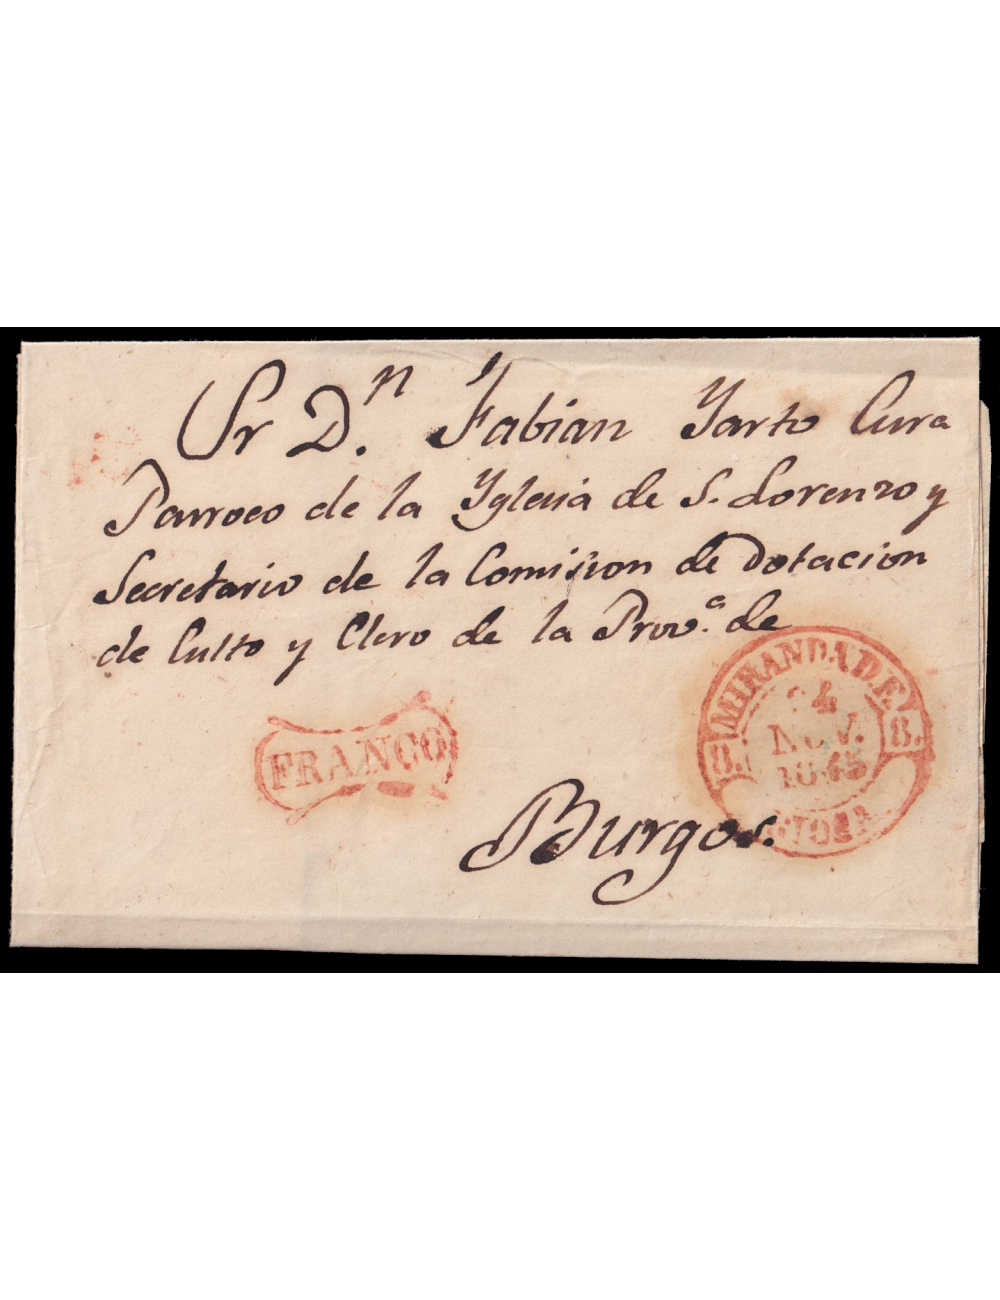 Sr D.n Fabian Yarto Cura
Parroco de la Yglesia de S. Lorenzo y
Secretario de la Comision de Dotacion
de Culto y Clero de la Prov.a de
Burgos.
FRANCO
MIRANDA DE.
8. 8.
4
NOV.
1845